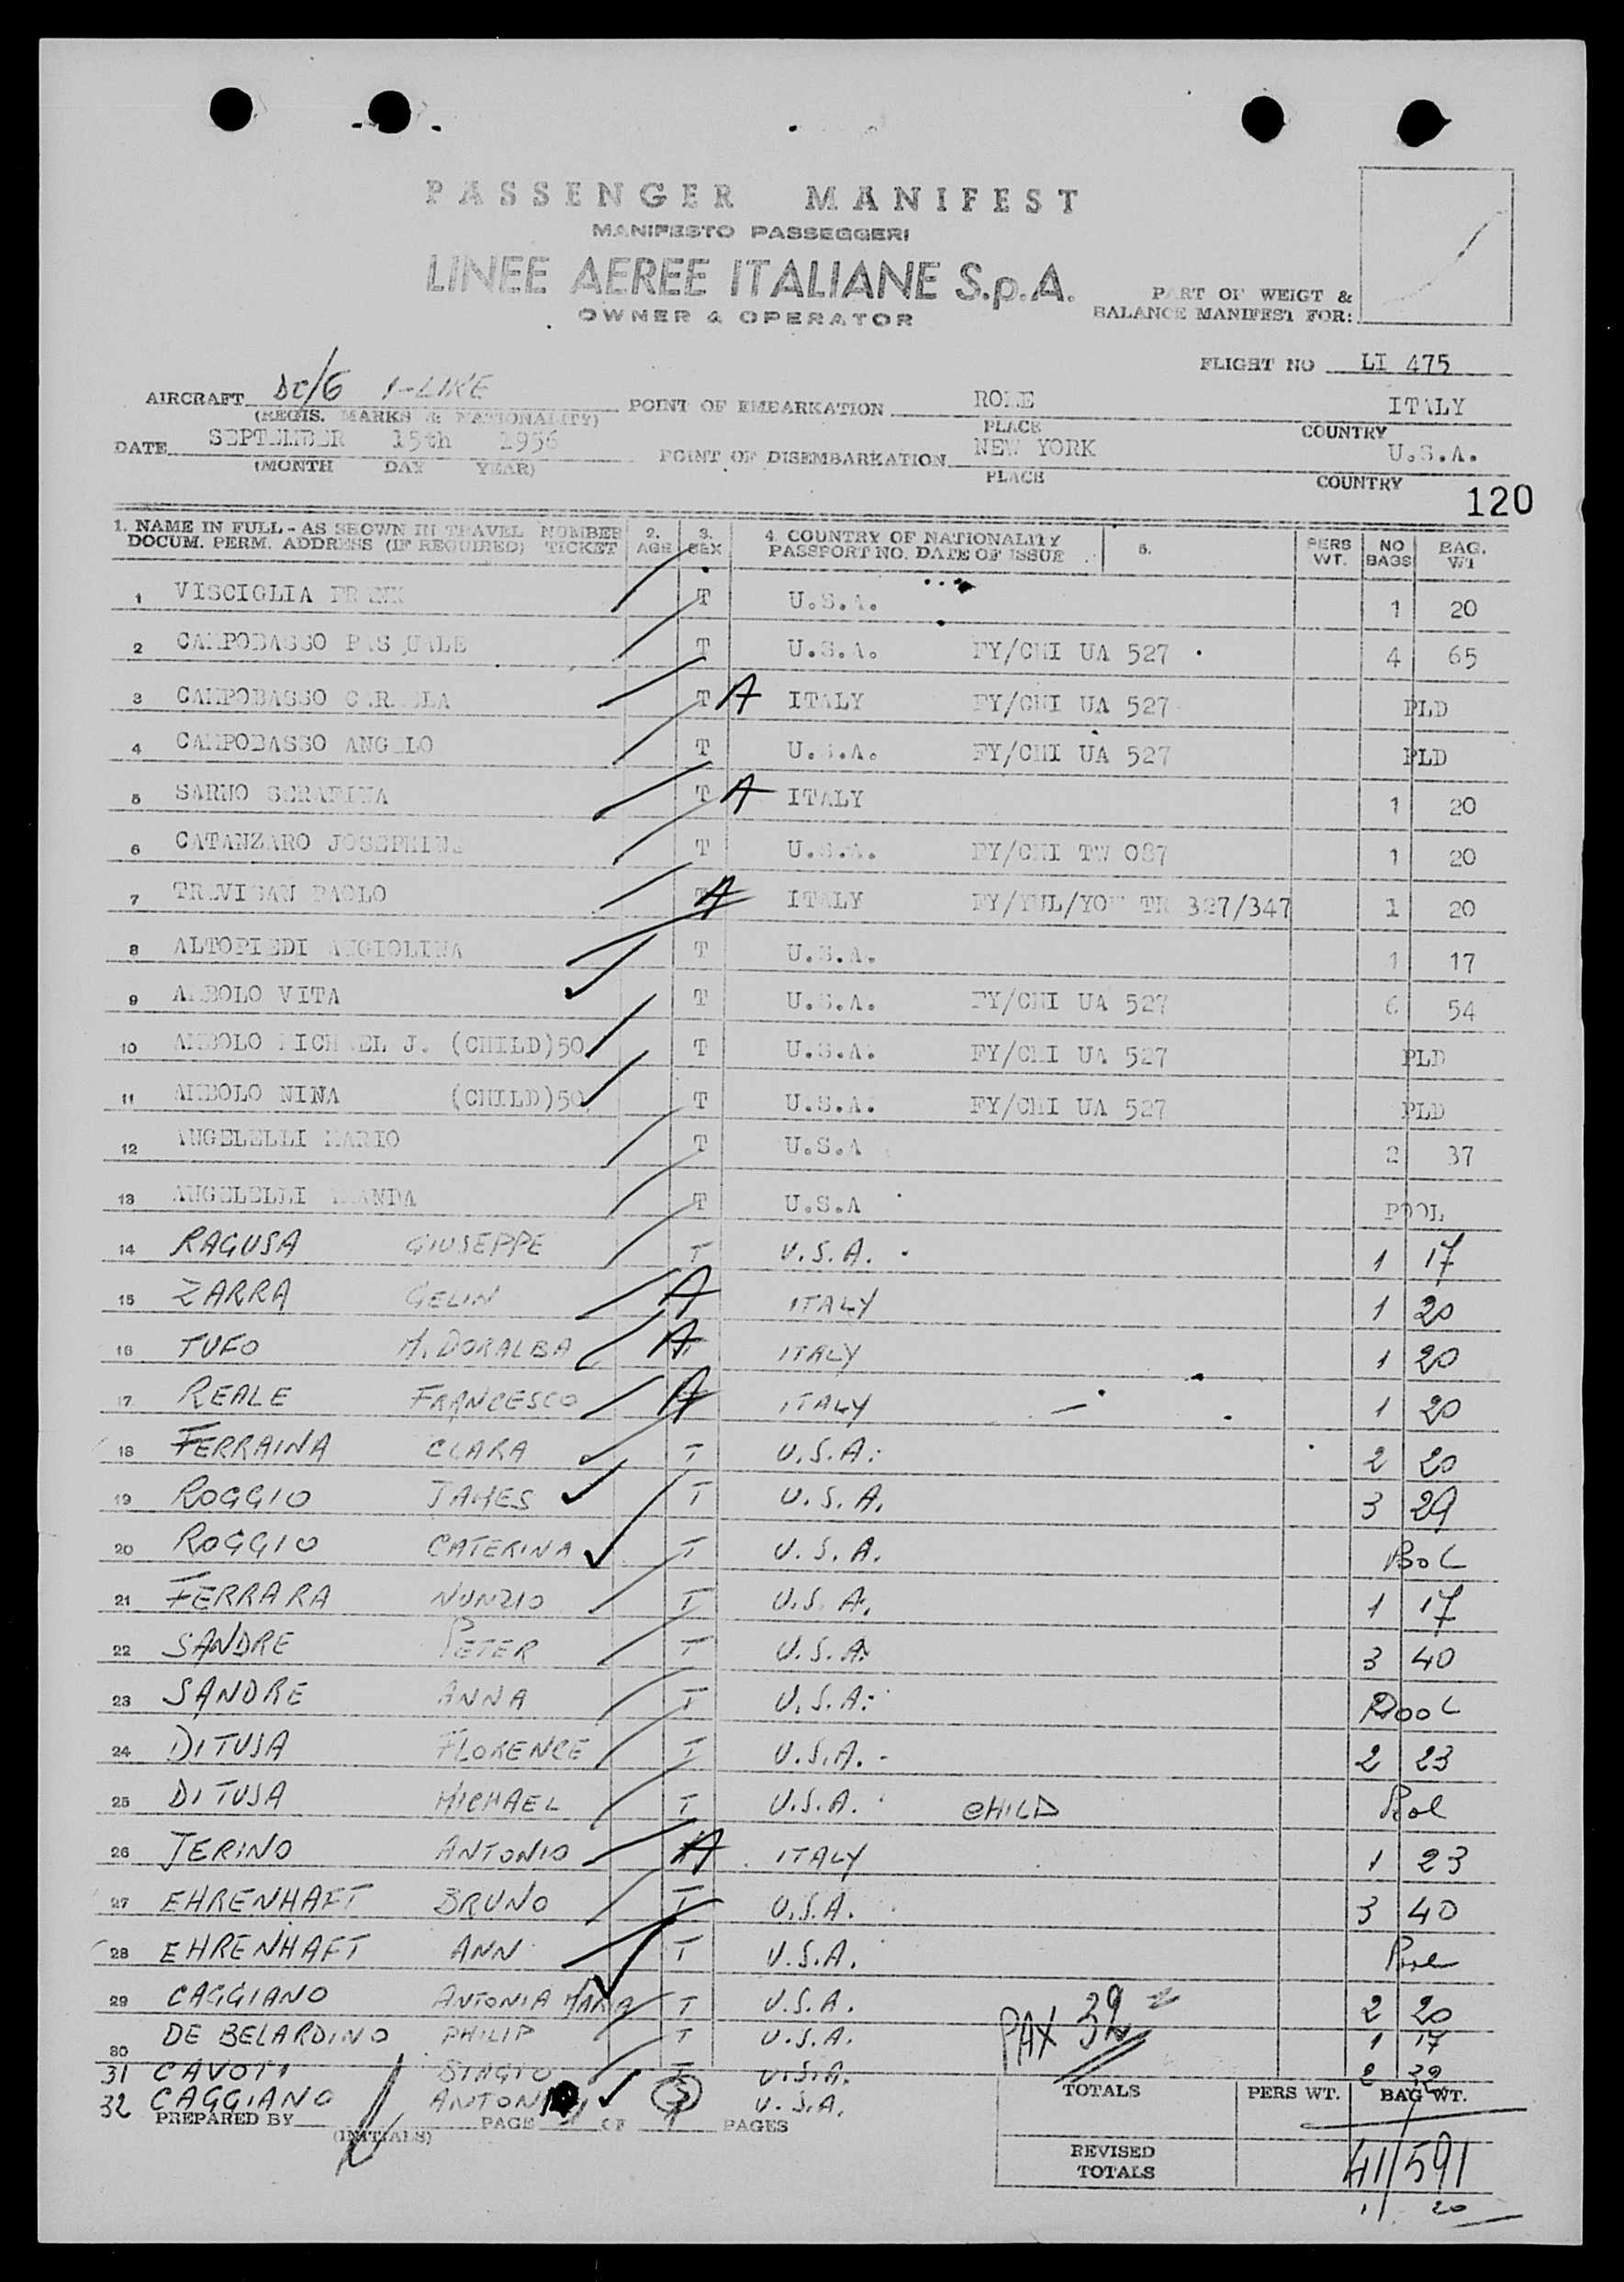 PASSENGER MANIFEST
MANIFESTO PASSEGGERI
LINEE AEREE ITALIANE S.p.A.
OWNER & OPERATOR
PART OF WEIGT &
BALANCE MANIFEST FOR:
FLIGHT NO LI 475
AIRCRAFT DC/6 I-LIKE
(REGIS. MARKS & NATIONALITY)
POINT OF EMBARKATION ROME ITALY
PLACE COUNTRY
DATE SEPTEMBER 15th 1956
(MONTH DAY YEAR)
POINT OF DISEMBARKATION NEW YORK U.S.A.
PLACE COUNTRY
120
1. NAME IN FULL - AS SHOWN IN TRAVEL NUMBER 2. 3. 4. COUNTRY OF NATIONALITY 5. PERS NO BAG.
DOCUM. PERM. ADDRESS (IF REQUIRED) TICKET AGE SEX PASSPORT NO. DATE OF ISSUE WT. BAGS WT
1 VISCIGLIA FRANK T U.S.A. 1 20
2 CAMPOBASSO PASQUALE T U.S.A. FY/CHI UA 527 4 65
3 CAMPOBASSO CARMELA T A ITALY FY/CHI UA 527 PLD
4 CAMPOBASSO ANGELO T U.S.A. FY/CHI UA 527 PLD
5 SARNO SERAFINA T A ITALY 1 20
6 CATANZARO JOSEPHINE T U.S.A. FY/CHI TW 087 1 20
7 TREVISAN PAOLO T A ITALY FY/YUL/YOW TR 327/347 1 20
8 ALTOPIEDI ANGIOLINA T U.S.A. 1 17
9 AMBOLO VITA T U.S.A. FY/CHI UA 527 6 54
10 AMBOLO MICHAEL J. (CHILD)50 T U.S.A. FY/CHI UA 527 PLD
11 AMBOLO NINA (CHILD)50 T U.S.A. FY/CHI UA 527 PLD
12 ANGELELLI MARIO T U.S.A 2 37
13 ANGELELLI WANDA T U.S.A POOL
14 RAGUSA GIUSEPPE T U.S.A. 1 17
15 ZARRA GELIN A ITALY 1 20
16 TUFO M. DORALBA A ITALY 1 20
17 REALE FRANCESCO A ITALY 1 20
18 FERRAINA CLARA T U.S.A. 2 20
19 ROGGIO JAMES T U.S.A. 3 29
20 ROGGIO CATERINA T U.S.A. Pool
21 FERRARA NUNZIO T U.S.A. 1 17
22 SANDRE PETER T U.S.A. 3 40
23 SANDRE ANNA T U.S.A. Pool
24 DI TUSA FLORENCE T U.S.A. 2 23
25 DI TUSA MICHAEL T U.S.A. CHILD Pool
26 JERINO ANTONIO A ITALY 1 23
27 EHRENHAFT BRUNO T U.S.A. 3 40
28 EHRENHAFT ANN T U.S.A. Pool
29 CAGGIANO ANTONIA MARIA T U.S.A. 2 20
30 DE BELARDINO PHILIP T U.S.A. 1 17
31 CAVOTI BIAGIO T U.S.A. 2 32
32 CAGGIANO U.S.A.
PAX 32
PREPARED BY
(INITIALS)
PAGE OF PAGES
TOTALS PERS WT. BAG WT.
REVISED
TOTALS
41/591
1/ 20